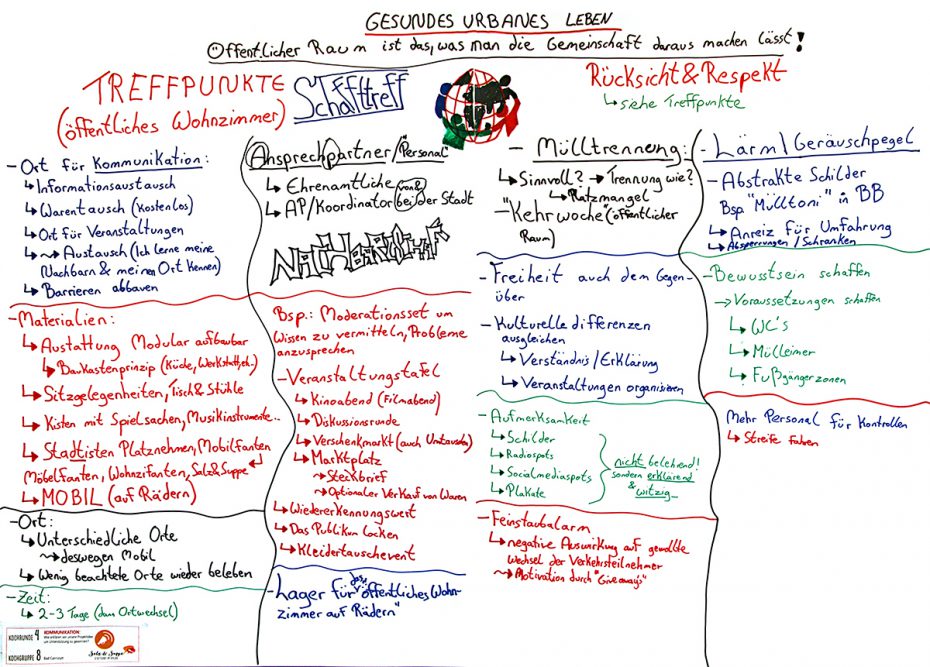 GESUNDES URBANES LEBEN
Öffentlicher Raum ist das, was man die Gemeinschaft daraus machen lässt!
TREFFPUNKTE
(öffentliches Wohnzimmer)
Schäfftreff
- Ort für Kommunikation:
↳ Informationsaustausch
↳ Warentausch (Kostenlos)
↳ Ort für Veranstaltungen
↳ ⇝ Austausch (Ich lerne meine
Nachbarn & meinen Ort kennen)
↳ Barrieren abbauen
- Materialien:
↳ Austattung Modular aufbaubar
↳ Baukastenprinzip (Küche, Werkstatt, etc.)
↳ Sitzgelegenheiten, Tisch & Stühle
↳ Kisten mit Spielsachen, Musikinstrumente...
↳ Stadtisten Platznehmen, Mobilfanten
Möbelfanten, Wohnzifanten, Salz & Suppe
↳ MOBIL (auf Rädern)
- Ort:
↳ Unterschiedliche Orte
⇝ deswegen Mobil
↳ Wenig beachtete Orte wieder beleben
- Zeit:
↳ 2-3 Tage (dann Ortwechsel)
KOCHRUNDE 4
KOCHGRUPPE 8
KOMMUNIKATION:
Bad Cannstatt
Salz & Suppe
Ansprechpartner/Personal
↳ Ehrenamtliche
↳ AP/Koordinator von & bei der Stadt
NACHBARSCHAF
Bsp.: Moderationsset um
Wissen zu vermitteln, Probleme
anzusprechen
- Veranstaltungstafel
↳ Kinoabend (Filmabend)
↳ Diskussionsrunde
↳ Verschenkmarkt (auch Umtausch)
↳ Marktplatz
⇝ Steckbrief
⇝ Optionaler Verkauf von Waren
↳ Wiedererkennungswert
↳ Das Publikum Locken
↳ Kleidertauschevent
- Lager für das "öffentliches Wohn-
zimmer auf Rädern"
Rücksicht & Respekt
↳ siehe Treffpunkte
- Mülltrennung:
↳ Sinnvoll? → Trennung wie?
↳ Platzmangel
- "Kehrwoche" (öffentlicher
Raum)
- Freiheit auch dem Gegen-
über
- Kulturelle differenzen
ausgleichen
↳ Verständnis/Erklärung
↳ Veranstaltungen organisieren
- Aufmerksamkeit
↳ Schilder
↳ Radiospots
↳ Socialmediaspots
↳ Plakate
nicht belehrend!
sondern erklärend
&
witzig
- Feinstaubalarm
↳ negative Auswirkung auf gewollte
wechsel der Verkehrsteilnehmer
⇝ Motivation durch "Give aways"
- Lärm/Geräuschpegel
- Abstrakte Schilder
Bsp "Mülltoni" in BB
↳ Anreiz für Umfahrung
↳ Absperrungen/Schranken
- Bewusstsein schaffen
→ Voraussetzungen schaffen
↳ WC's
↳ Mülleimer
↳ Fußgängerzonen
Mehr Personal für Kontrollen
↳ Streife fahren